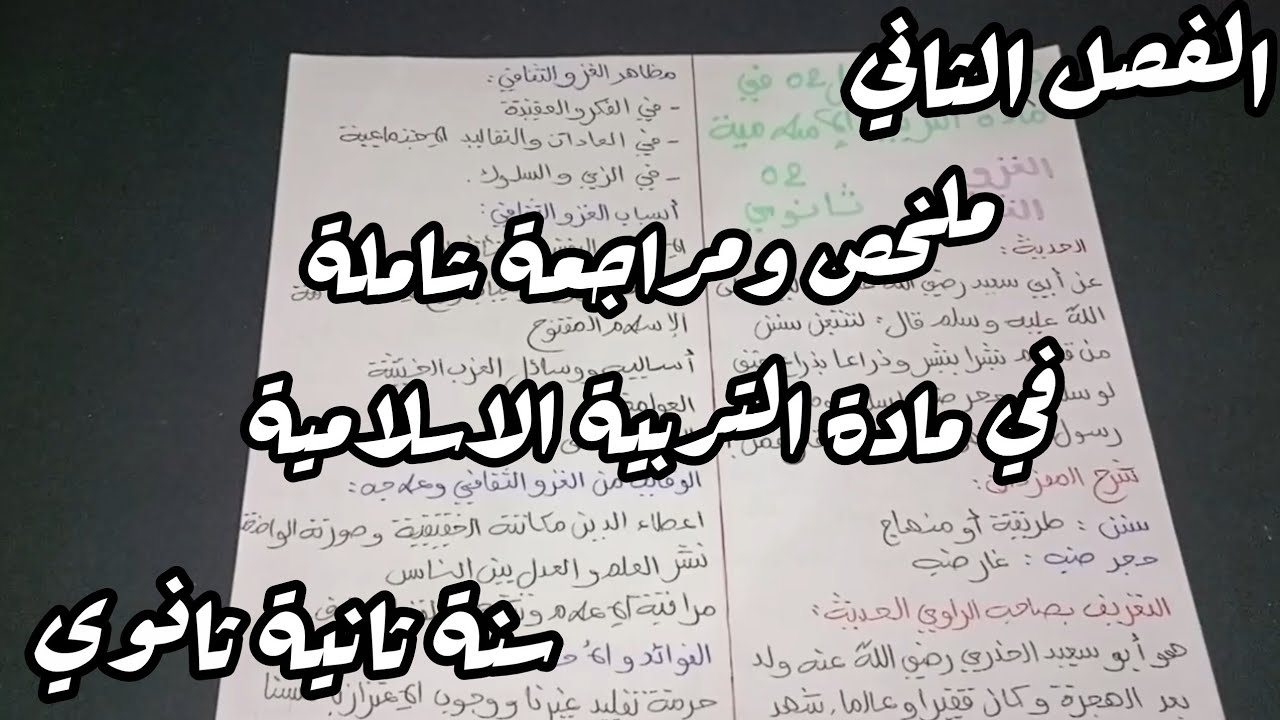 الفصل الثاني
ملخص ومراجعة شاملة
في مادة التربية الاسلامية
سنة تانية تانوي
02 في
مادة
الغزو
02
ثانوي
الحديث:
عن أبي سعيد رضي
الله عليه وسلم قال: لتتبعن سنن
من شبرا بشبر وذراعا بذراع
لو
رسول
شرح المفردات:
سنن: طريقة أو منهاج
حجر ضب: غار ضب
التعريف بصاحب الراوي الحديث:
هو أبو سعيد الخذري رضي الله عنه ولد
بعد الهجرة وكان فقيرا وعالما، شهد
مظاهر الغزو الثقافي:
- في الفكر والعقيدة
- في العادات والتقاليد الاجتماعية
- في الزي والسلوك.
أسباب الغزو الثقافي:
الإسلام المفتوح
أساليب ووسائل الغرب الخبيثة
العولمة
الوقاية من الغزو الثقافي وعلاجه:
اعطاء الدين مكانته الحقيقية وصورته
نشر العلم والعدل بين الناس
مراقبة الإعلام
الفوائد
حرمة تقليد غيرنا ووجوب الاعتزاز